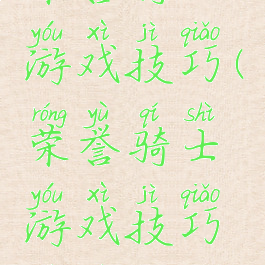 yóu xì jì qiǎo
游戏技巧(
róng yù qí shì
荣誉骑士
yóu xì jì qiǎo
游戏技巧